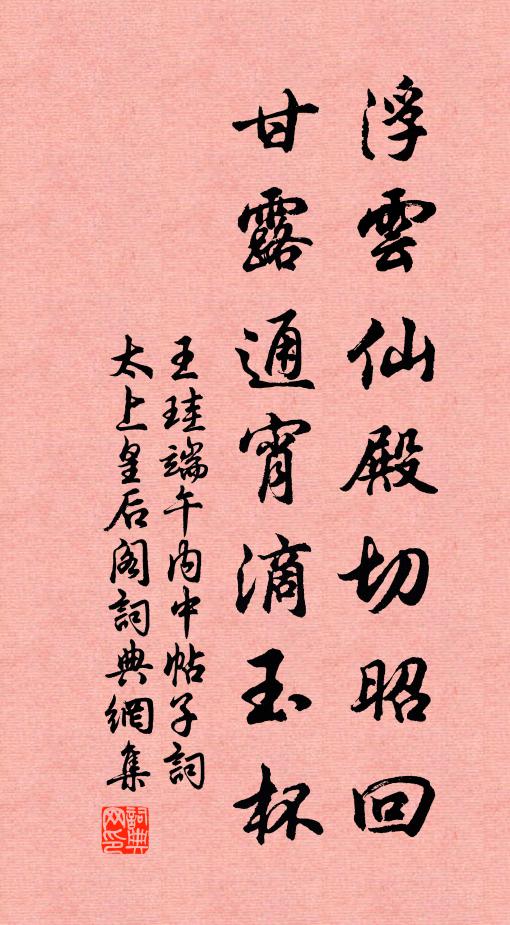 浮雲仙殿切昭回
甘露通宵滴玉杯
王珪端午内中帖子詞
太上皇后阁詞典網集
詞典网印